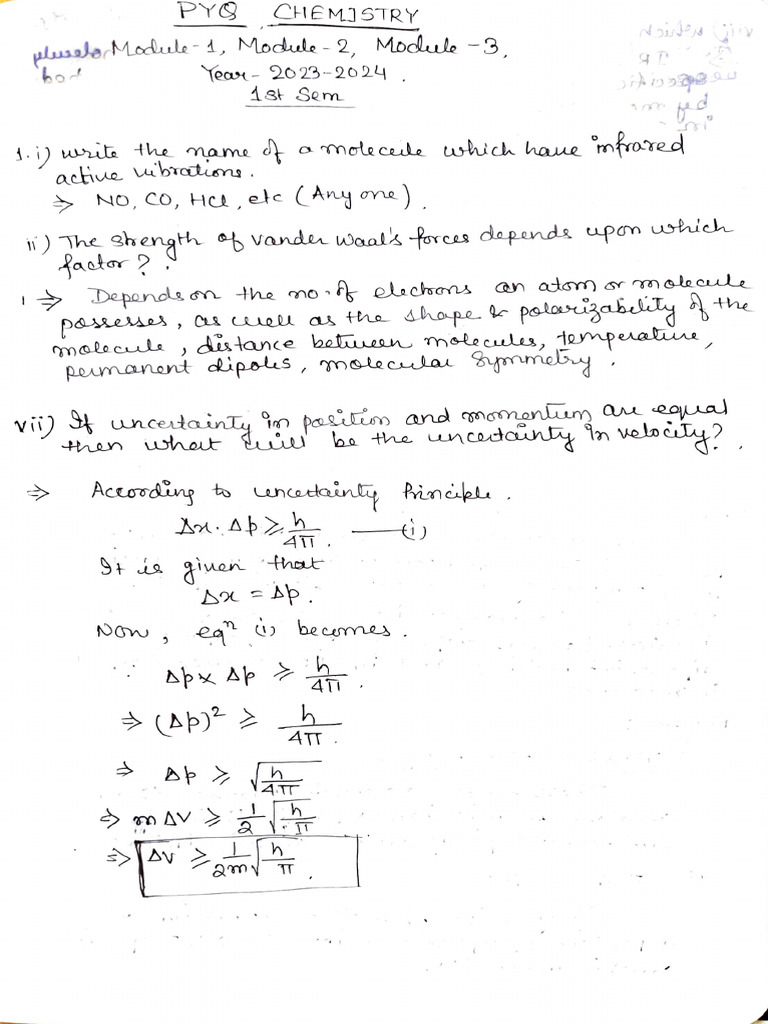 PYQ CHEMISTRY
Module-1, Module-2, Module-3,
Year-2023-2024.
1st Sem
1.i) write the name of a molecule which have infrared
active vibrations.
⇒ NO, CO, HCl, etc (Any one).
ii) The strength of vander waal's forces depends upon which
factor?
⇒ Depends on the no. of electrons an atom or molecule
possesses, as well as the shape & polarizability of the
molecule, distance between molecules, temperature,
permanent dipoles, molecular symmetry.
vii) If uncertainty in position and momentum are equal
then what will be the uncertainty in velocity?
⇒ According to uncertainty Principle.
Δx. Δp ≥ h/4π. —(i)
It is given that
Δx = Δp.
Now, eqⁿ (i) becomes.
∵ Δp x Δp ≥ h/4π.
⇒ (Δp)² ≥ h/4π.
⇒ Δp ≥ √(h/4π)
⇒ mΔv ≥ 1/2 √(h/π)
⇒ Δv ≥ 1/2m √(h/π).